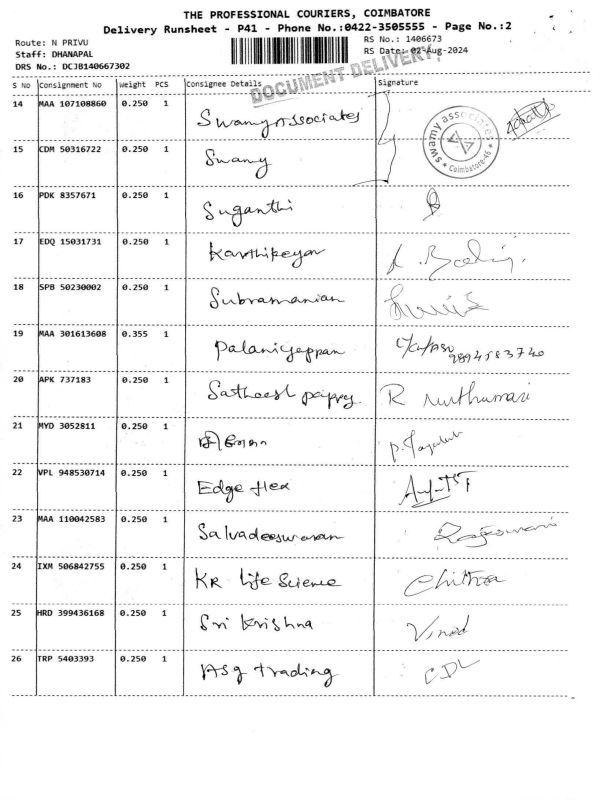 THE PROFESSIONAL COURIERS, COIMBATORE
Delivery Runsheet - P41 - Phone No.:0422-3505555 - Page No.:2
Route: N PRIVU
RS No.: 1406673
Staff: DHANAPAL
RS Date: 02-Aug-2024
DRS No.: DCJB140667302
DOCUMENT DELIVERY
S No Consignment No Weight PCS Consignee Details Signature
14 MAA 107108860 0.250 1 Swamy Associates
swamy associates * Coimbatore-46 *
15 CDM 50316722 0.250 1 Swamy
16 PDK 8357671 0.250 1 Suganthi
17 EDQ 15031731 0.250 1 Karthikeyan
18 SPB 50230002 0.250 1 Subramanian
19 MAA 301613608 0.355 1 Palaniyappan
20 APK 737183 0.250 1 Satheesh R Muthumari
21 MYD 3052811 0.250 1
22 VPL 948530714 0.250 1 Edge flex
23 MAA 110042583 0.250 1 Salvadeeswaran
24 IXM 506842755 0.250 1 KR Life Science Chithra
25 HRD 399436168 0.250 1 Sri Krishna Vinod
26 TRP 5403393 0.250 1 Asg trading CDL